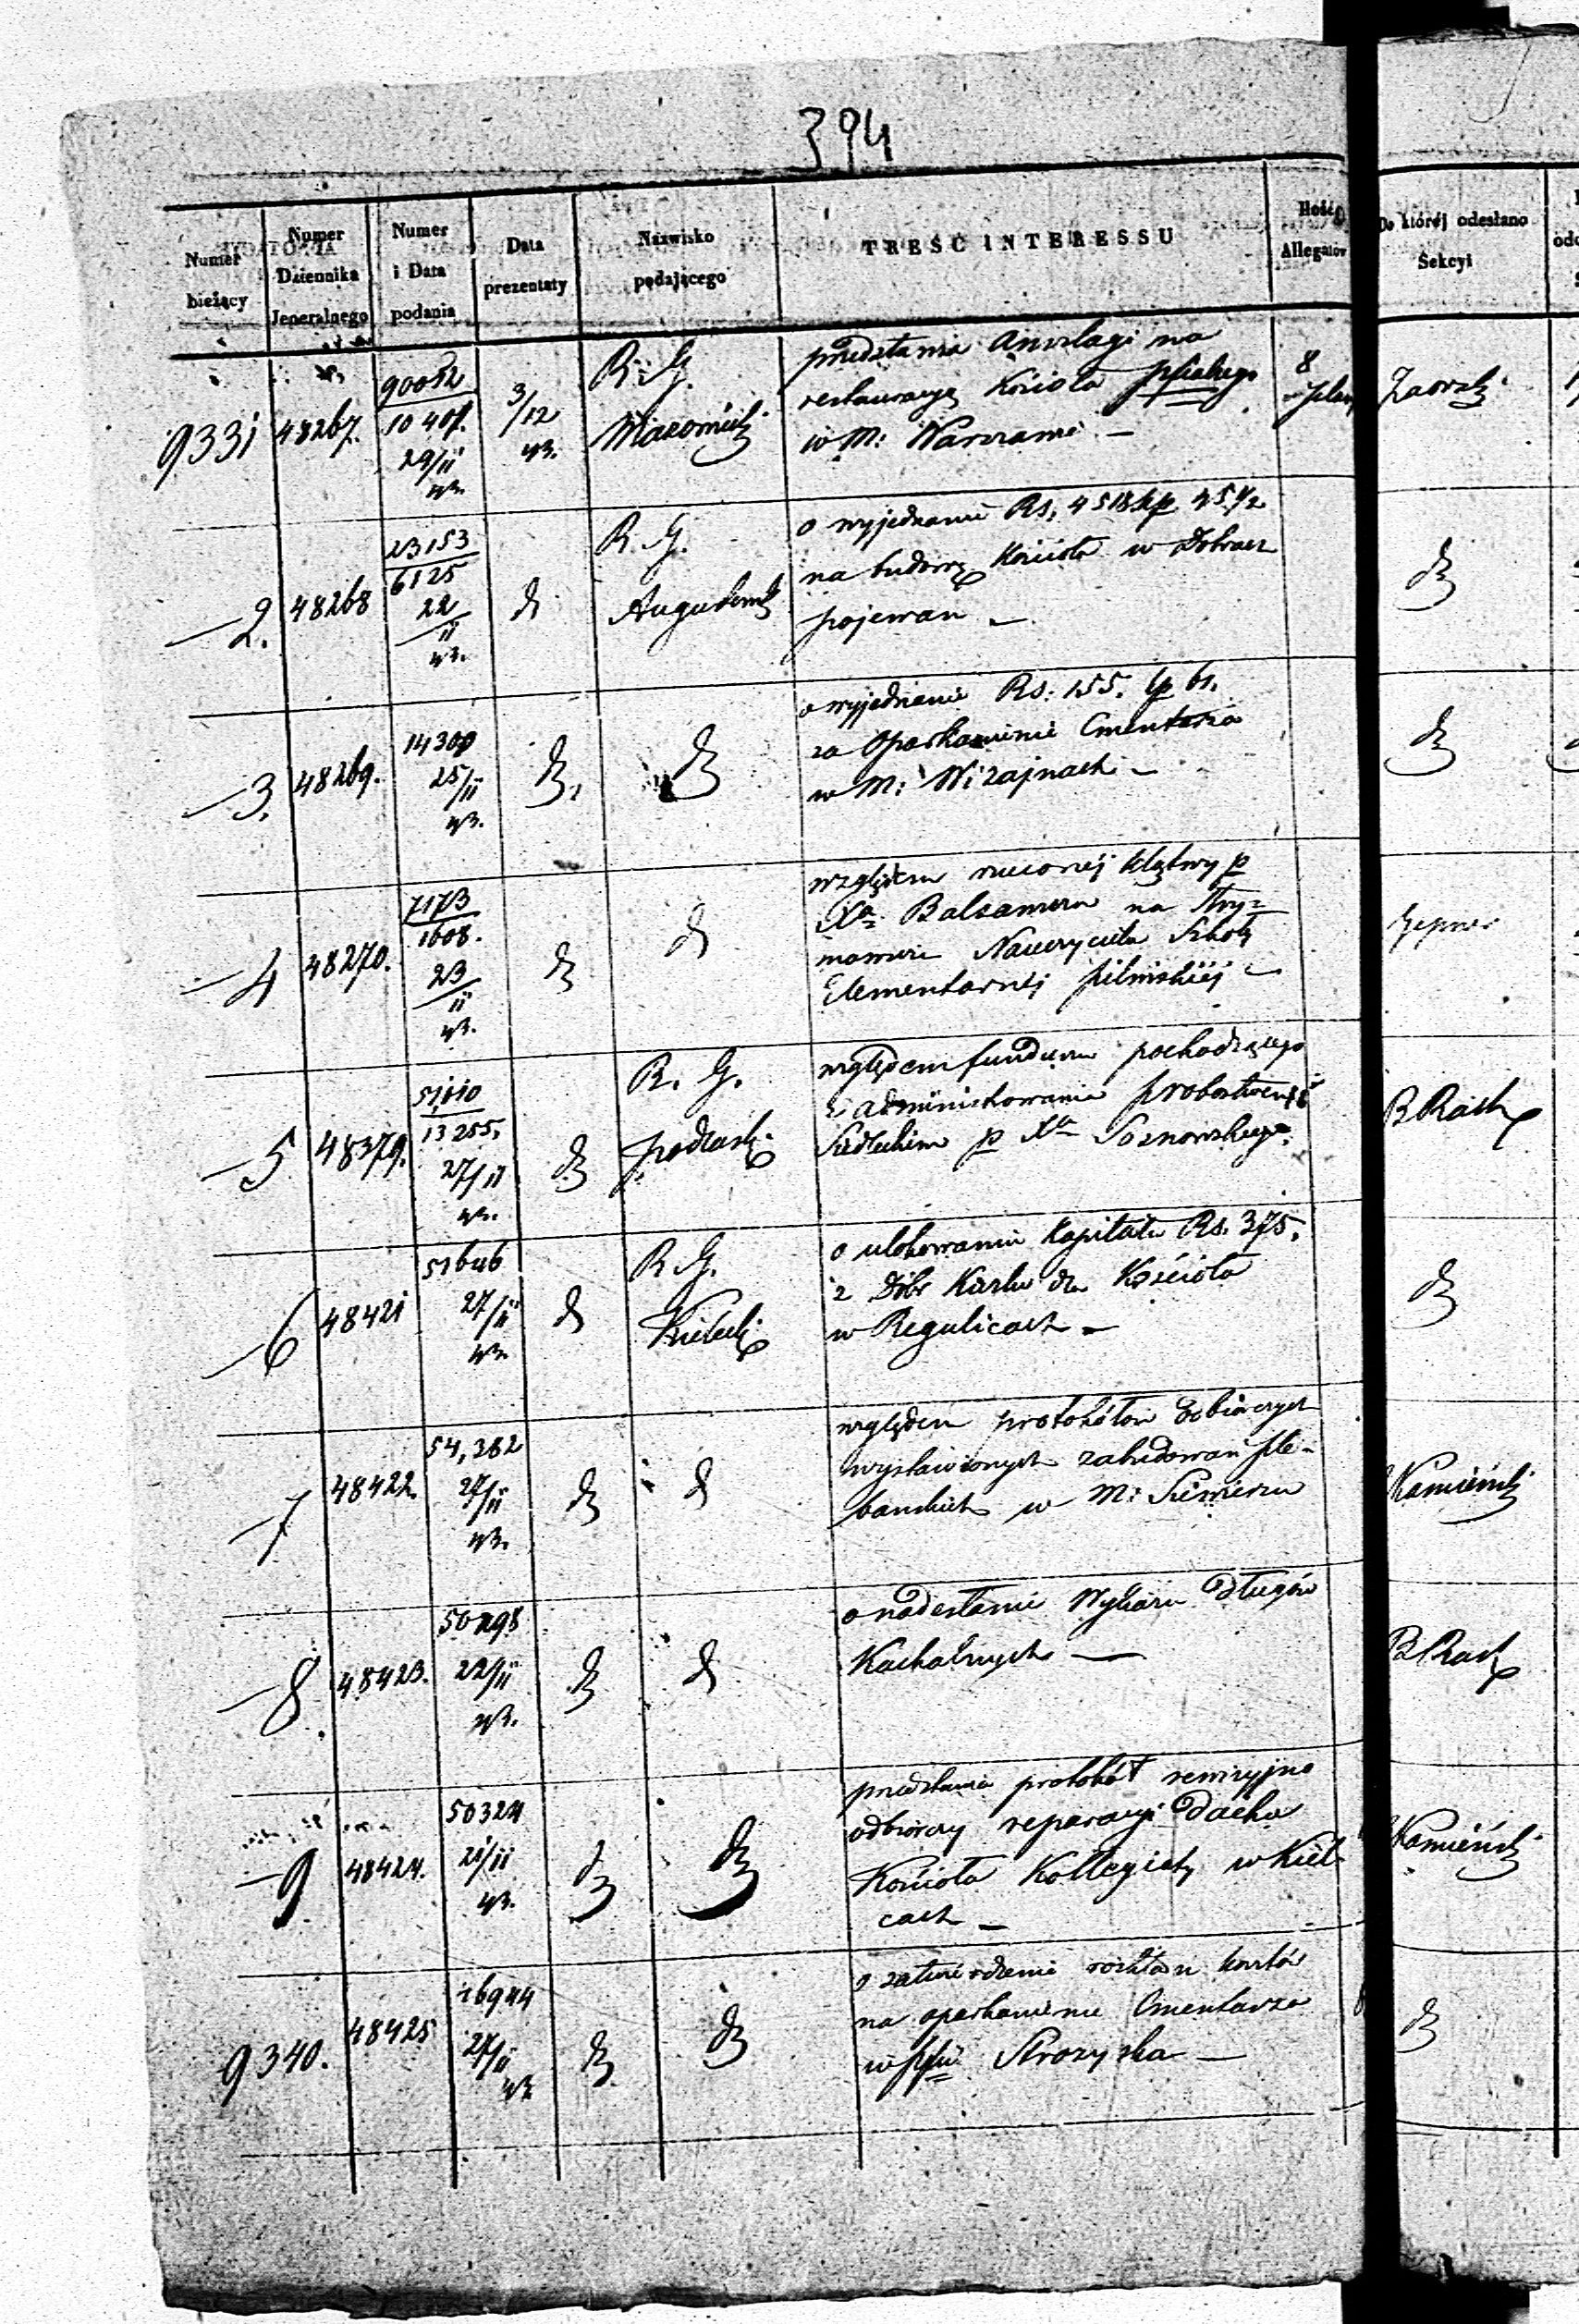 394
Numer bieżący
Numer Dziennika Jeneralnego
Numer i Data podania
Data prezentaty
Nazwisko podającego
TREŚĆ INTERESSU
Ilość Allegatów
Do której odesłano Sekcyi
9331 48267. 90052 / 10407. 29/11 43. 3/12 43. R. G. Mazowiecki
przedstawia Anszlagi na
restauracyę Kościoła
w M: Warszawie —
8
Zaorski
— 2. 48268 23153 / 6125 22/11 43. d R. G. Augustowski
o wyjednanie Rs. 4518 kp 45 1/2
na budowę Kościoła w Dobrach
pojewan —
dt
— 3. 48269. 14300 25/11 43. dt. dt
o wyjednanie Rs: 155. kp 61.
za Oparkanienie Cmentarza
w M: Wizajnach —
dt
— 4 48270. 7173 / 1608. 23/11 43. dt d
względem rzuconej klątwy p
Xa Balsamera na Trzy=
mowice Nauczyciela Szkoły
Elementarnej pilwiskiej —
— 5 48379. 51,010 / 13255. 27/11 43. dt R. G. Podlaski
względem funduszu pochodzącego
z administrowania probostwem
Siedleckim p Xa Sosnowskiego.
B Rath
— 6 48421 51646 27/11 43. d R. G. Kielecki
o ulokowaniu Kapitału Rs. 375.
z Dóbr Karlu dla Kościoła
w Regulicach —
dt
— 7 48422. 54,382 27/11 43. dt d
względem protokółów Odbiorczych
wystawionych zabudowań ple=
bańskich w M: Siewierzu
Kamieński
— 8. 48423. 50298 22/11 43. dt d
o nadesłanie Wykazu długów
Kachalnych —
B Rath
— 9 48424. 50324 21/11 43. dt dt
przedstawia protokół rewizyjno
odbiorczy reparacyi Dachu
Kościoła Kollegiaty w Kiel=
cach —
Kamieński
9340. 48425 16944 27/11 43 dt dt
o zatwierdzenie rozkładu kosztów
na oparkanienie Cmentarza
w Strozyska —
dt